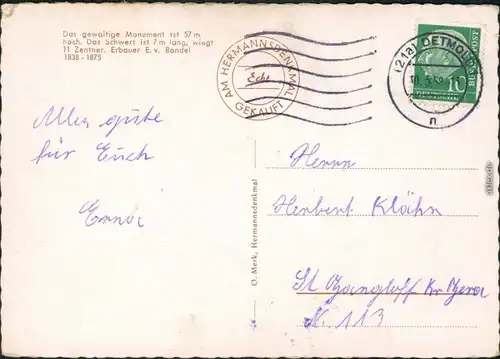 Das gewaltige Monument ist 57 m
hoch. Das Schwert ist 7 m lang, wiegt
11 Zentner. Erbauer E. v. Bandel
1838 - 1875
AM HERMANNSDENKMAL
Echt
GEKAUFT
(21a) DETMOLD
n
10
DEUTSCHE
Alles gute
für Euch
Erna
O. Merk, Hermannsdenkmal
Herrn
Herbert Klöhn
St Gangloff Kr Gera
N. 113